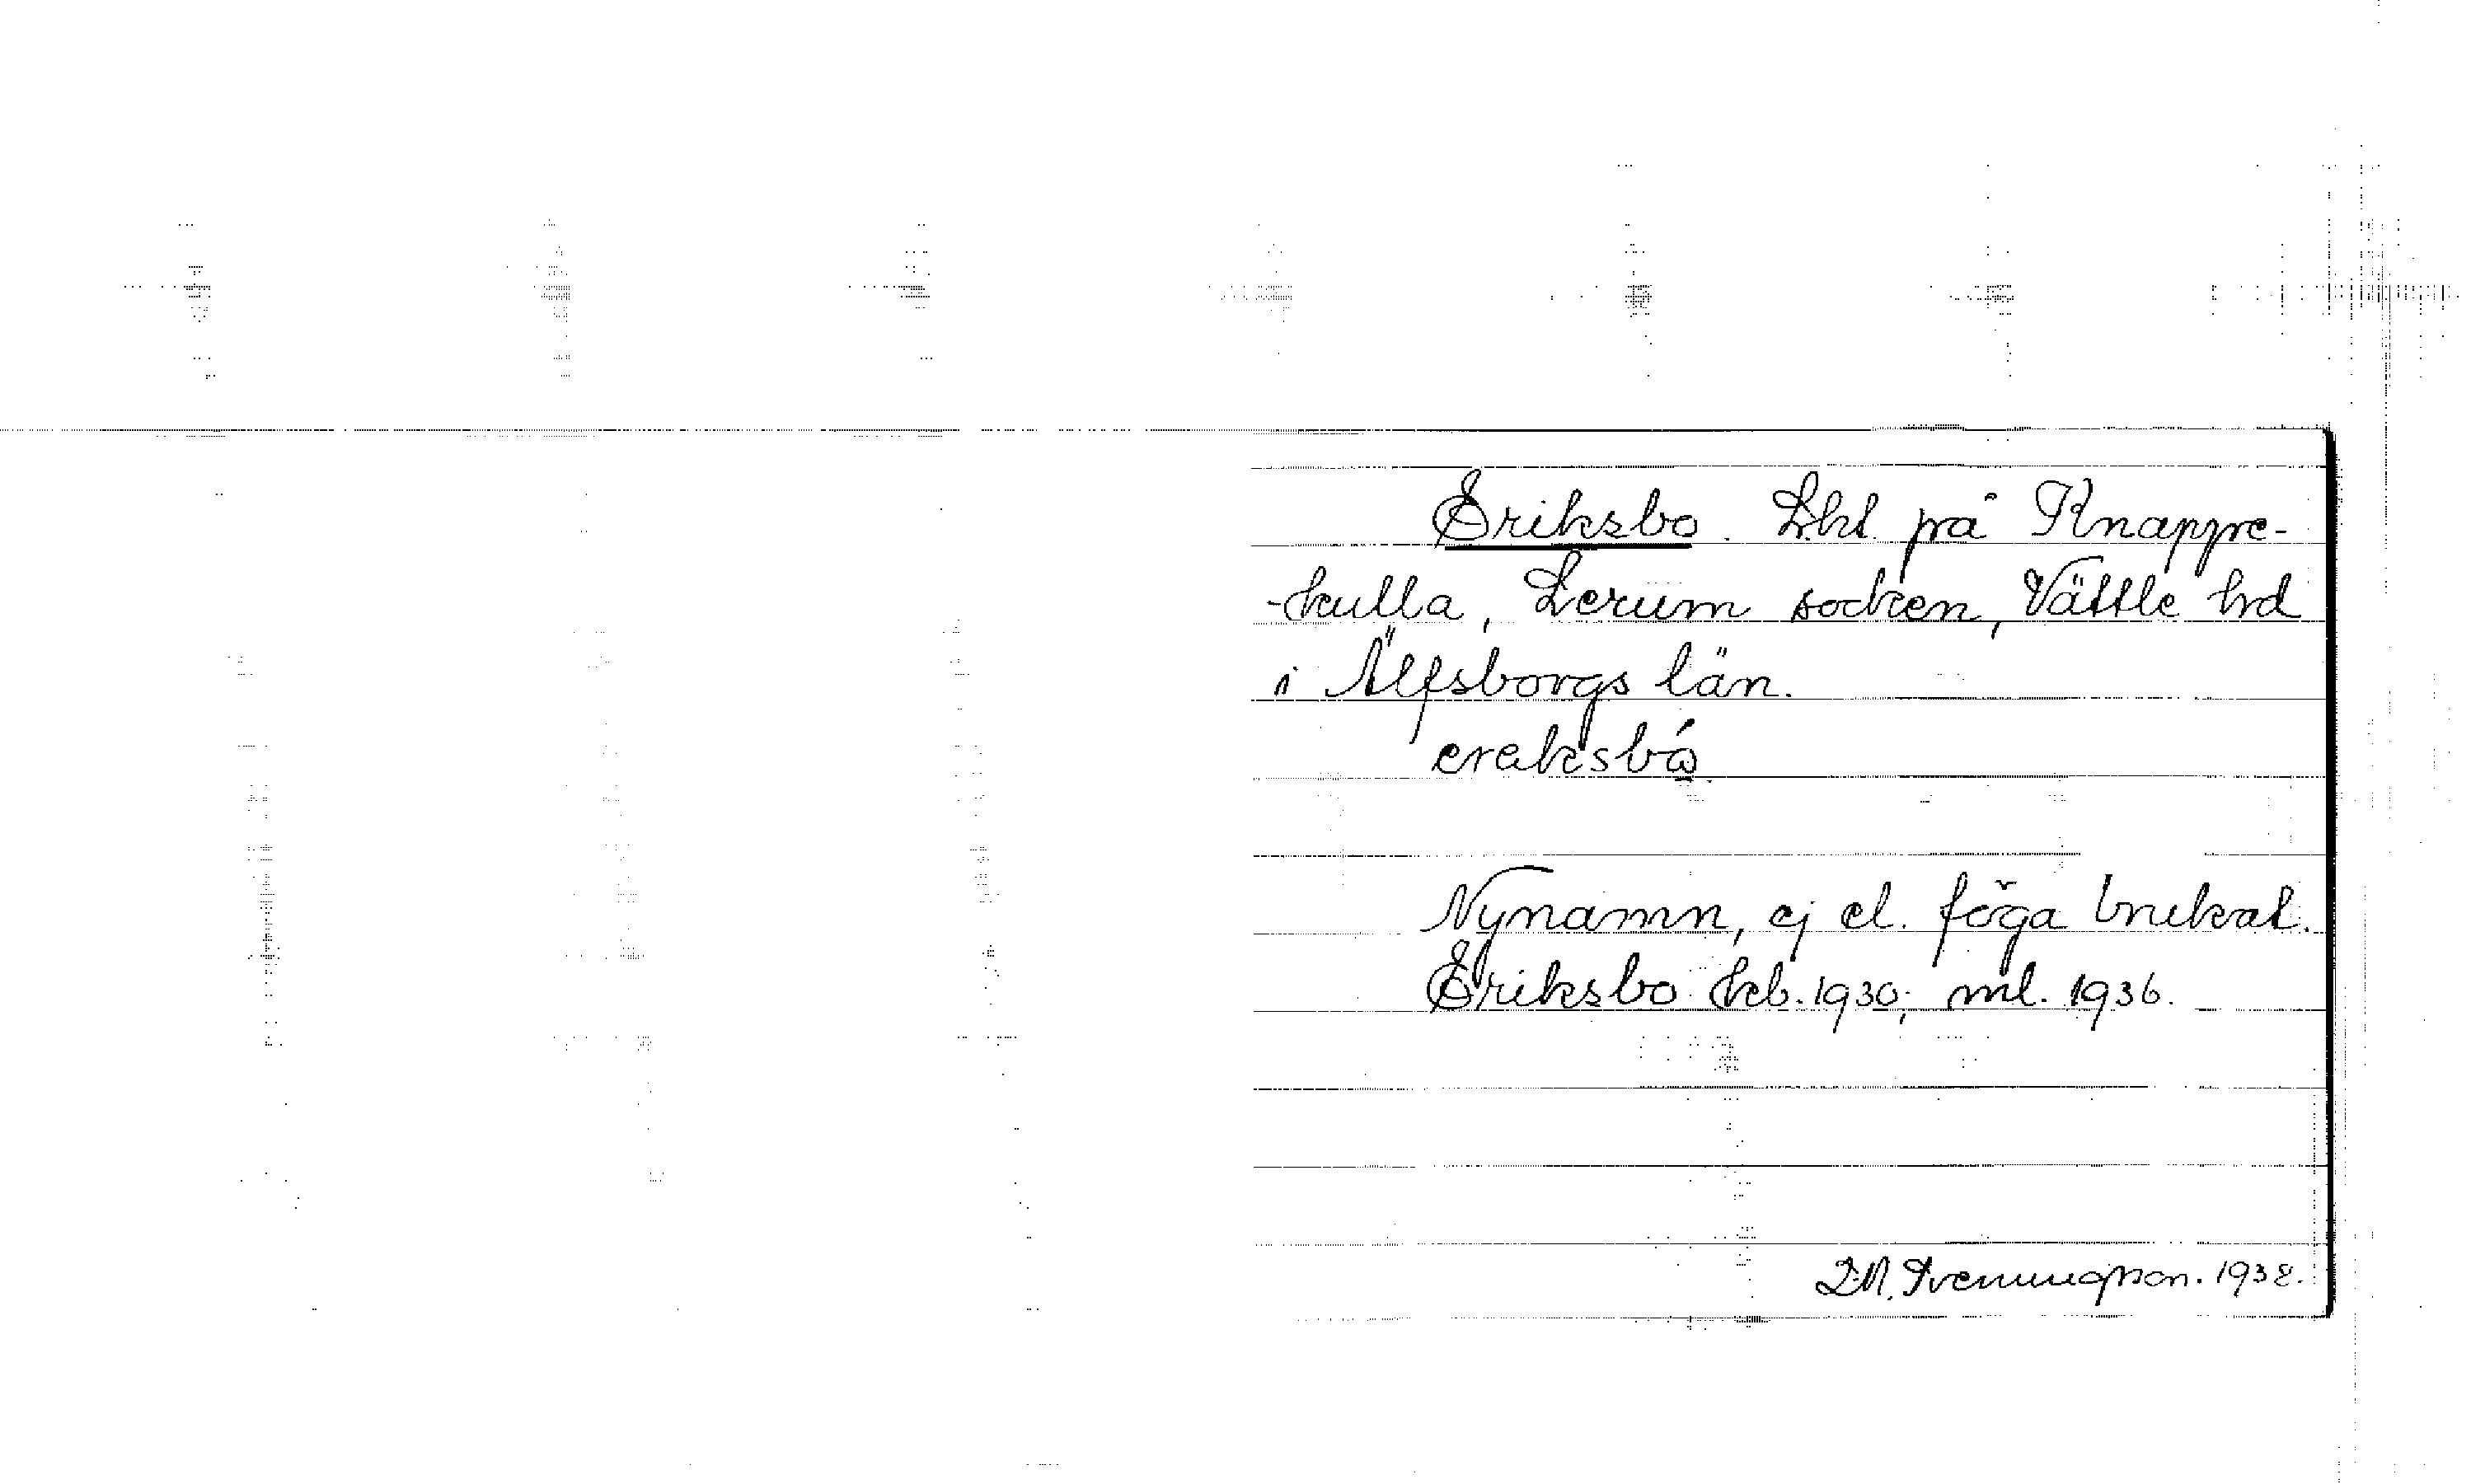 Eriksbo. Lht. på Knappe-
-kulla, Lerum socken, Vättle hd
i Älfsborgs län.
ereksbå̀
Nynamn, ej el. föga brukat.
Eriksbo kb. 1930, ml. 1936.
1938.